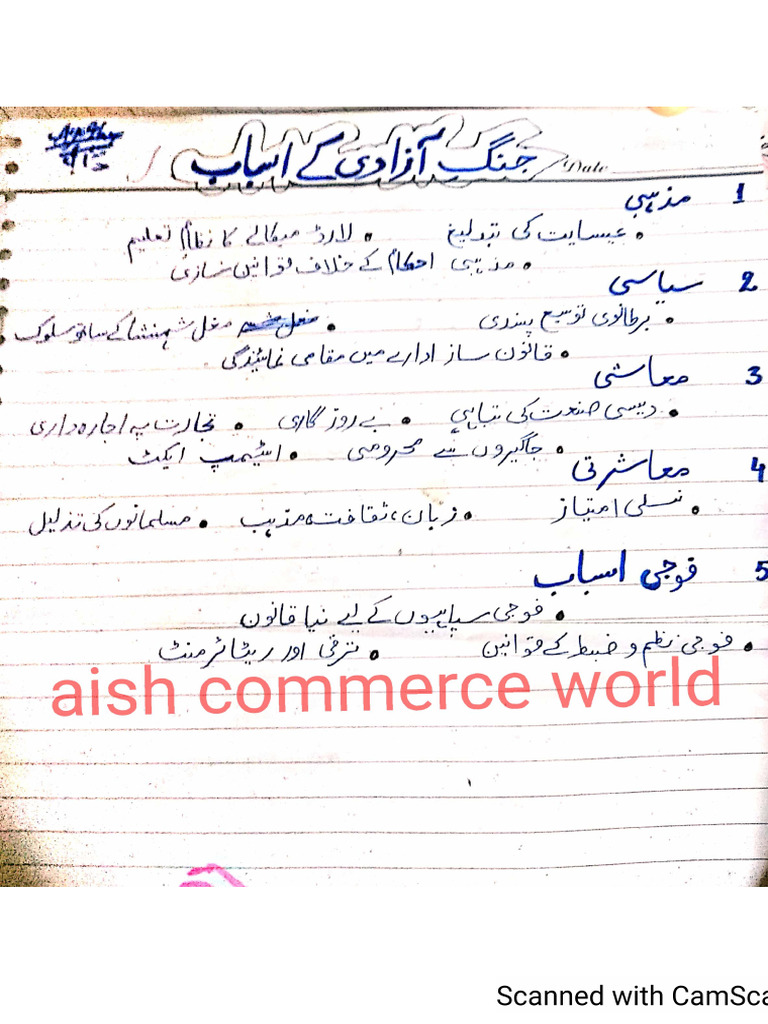 جنگ آزادی کے اسباب
Date
1 مذہبی
• عیسایت کی تبدلیغ • لارڈ میکالے کا نظام تعلیم
• مذہبی احکام کے خلاف قوانین سازی
2 سیاسی
• برطانوی توسیع پسندی • مغل شہنشا کے ساتھ سلوک
• قانون ساز ادارے میں مقامی نمائیندگی
3 معاشی
• دیسی صنعت کی تباہی • بے روزگاری • تجارت پہ اجارہ داری
• جاگیروں سے محرومی • اسٹیمپ ایکٹ
4 معاشرتی
• نسلی امتیاز • زبان، ثقافت، مذہب • مسلمانوں کی تذلیل
5 فوجی اسباب
• فوجی سپاہیوں کے لیے نیا قانون
• فوجی نظم و ضبط کے قوانین • ترقی اور ریٹائرمنٹ
aish commerce world
Scanned with CamSca